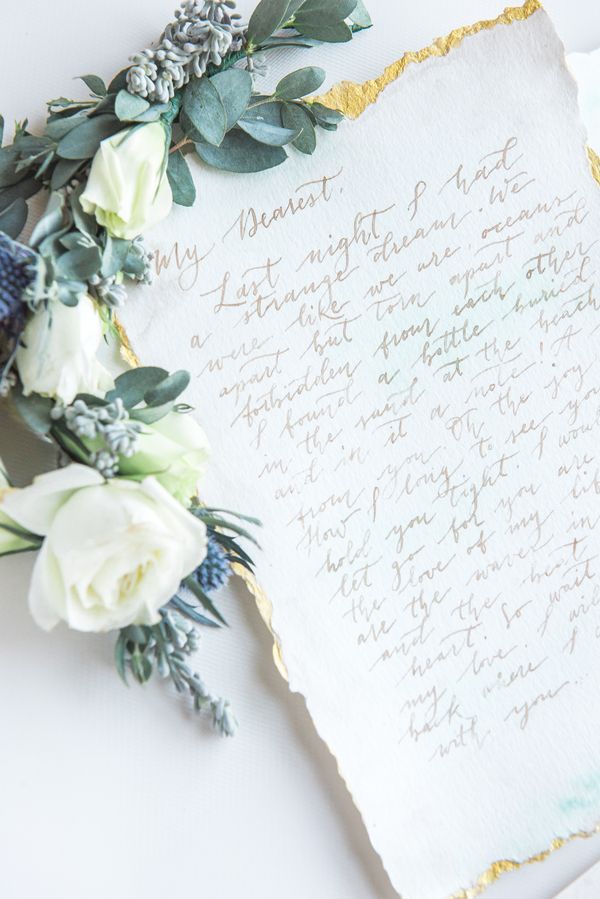 My Dearest,
Last night I had
a strange dream. We
were like we are, oceans
apart but torn apart and
forbidden from each other
I found a bottle buried
in the sand at the beach
and in it a note! A
from you. Oh the joy
How I long to see you
hold you tight. I would
let go for you are
the love of my life
are the waves in
and the beat
heart. So wait
my love. I will
back where I
with you...